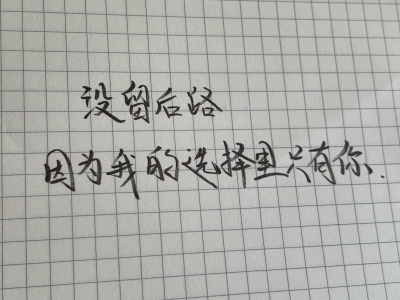 没留后路
因为我的选择里只有你.